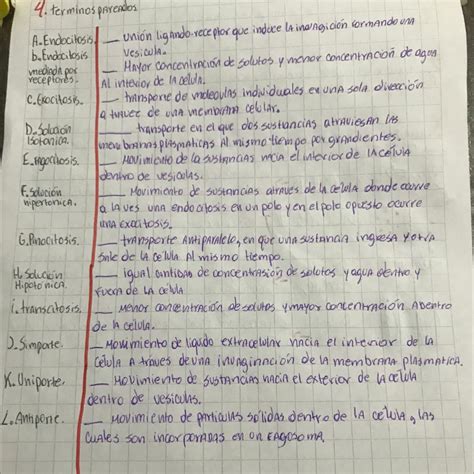 4. terminos pareados
A. Endocitosis. ___ unión ligando-receptor que induce la invaginación formando una
vesicula.
b. Endocitosis
mediada por
receptores. ___ Mayor concentración de solutos y menor concentración de agua
Al interior de la celula.
C. Exocitosis. ___ transpone de moleculas individuales en una sola dirección
a travez de una membrana celular.
D. Solución
Isotonica. ___ transporte en el que dos sustancias atraviesan las
membranas plasmaticas Al mismo tiempo por grandientes.
E. Fagocitosis. ___ Movimiento de la sustancias hacia el interior de la celula
dentro de vesiculas.
F. solución
hipertonica. ___ Movimiento de sustancias atraves de la celula donde ocurre
a la ves una endocitosis en un polo y en el polo opuesto ocurre
una exocitosis.
G. Pinocitosis. ___ transporte Antiparalelo, en que una sustancia ingresa y otra
sale de la celula Al mismo tiempo.
H. Solución
Hipotonica. ___ igual cantidad de concentrasion de solutos y agua dentro y
fuera de la celula
i. transcitosis. ___ Menor concentración de solutos y mayor concentración Adentro
de la celula.
J. Simporte. ___ Movimiento de liquido extracelular hacia el interior de la
Celula A traves de una invaginación de la membrana plasmatica.
K. Uniporte. ___ Movimiento de sustancias hacia el exterior de la celula
dentro de vesiculas.
L. Antiporte. ___ Movimiento de particulas sólidas dentro de la celula, las
cuales son incorporadas en un fagosoma.